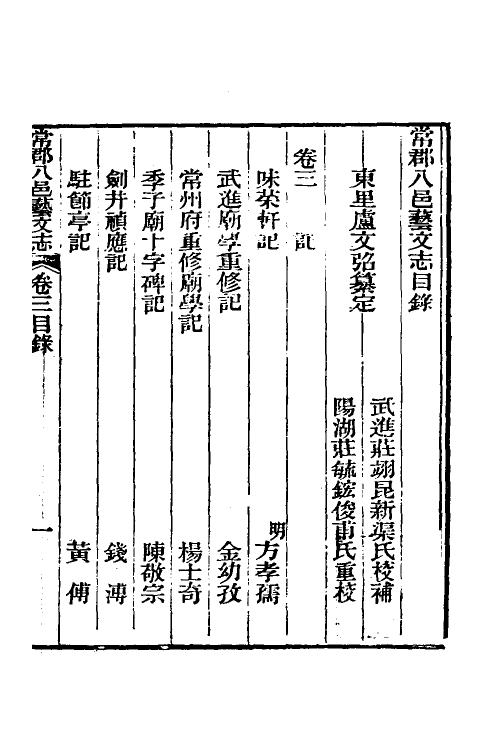 常郡八邑藝文志目錄
東里盧文弨纂定
武進莊翊昆新渠氏校補
陽湖莊毓鋐俊甫氏重校
卷三 記
味菜軒記 明方孝孺
武進廟學重修記 金幼孜
常州府重修廟學記 楊士奇
季子廟十字碑記 陳敬宗
劍井禎應記 錢溥
駐節亭記 黃傅
常郡八邑藝文志 卷三目錄 一